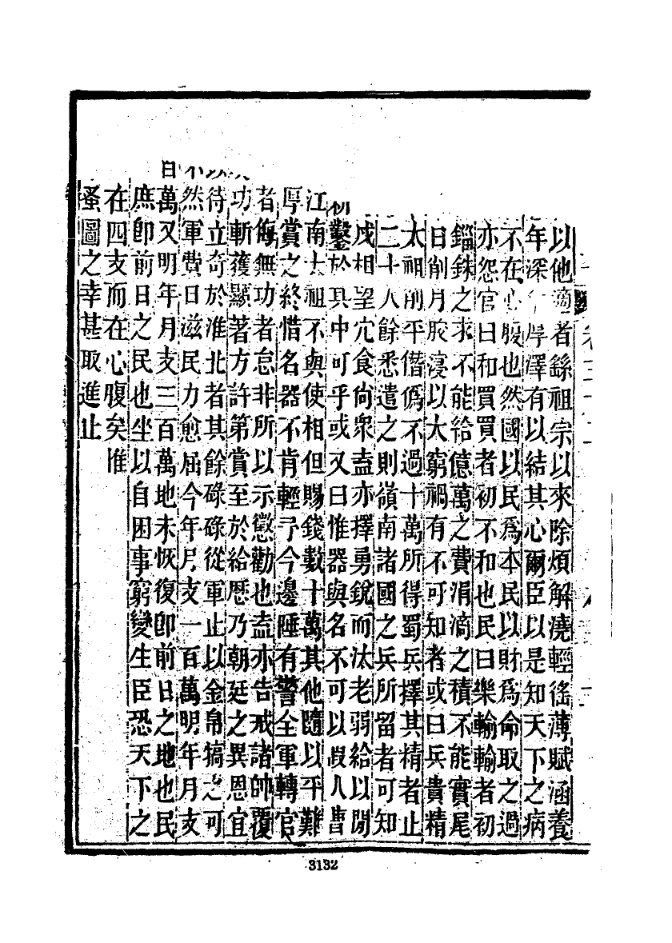 以他適者繇祖宗以來除煩解澆輕徭薄賦涵養
年深厚澤有以結其心爾臣以是知天下之病
不在心腹也然國以民爲本民以財爲命取之過
亦怨官曰和買買者初不和也民曰樂輸輸者初
錙銖之求不能給億萬之費涓滴之積不能實尾
日削月朘寖以大窮禍有不可知者或曰兵貴精
太祖削平僭僞不過十萬所得蜀兵擇其精者止
二十人餘悉遣之則嶺南諸國之兵所留者可知
戍相望宂食尙衆盍亦擇勇銳而汰老弱給以閒
初鑿於其中可乎或又曰惟器與名不可以假人曹
江南太祖不與使相但賜錢數十萬其他隨以平難
厚賞之終惜名器不肯輕予今邊陲有警全軍轉官
者侮無功者怠非所以示懲勸也盍亦告戒諸帥覆
功斬獲顯著方許第賞至於給歷乃朝廷之異恩宜
待立奇於淮北者其餘碌碌從軍止以金帛犒之可
然軍費日滋民力愈屈今年月支一百萬明年月支
日萬又明年月支三百萬地未恢復卽前日之地也民
庶卽前日之民也坐以自困事窮變生臣恐天下之
在四支而在心腹矣惟
蚤圖之幸甚取進止
3132